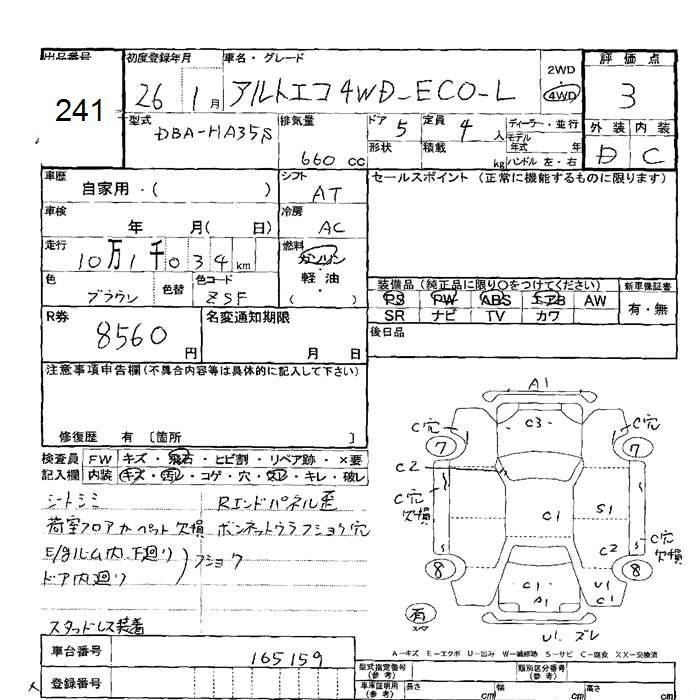 出品番号 初度登録年月 車名・グレード 評価点
241 26 1月 アルトエコ 4WD-ECO-L 2WD 4WD 3
型式 排気量 ドア 5 定員 4人 ディーラー・並行 外装 内装
DBA-HA35S 660cc 形状 積載 kg モデル年式 年 D C
ハンドル 左・右
車歴 自家用・( ) シフト AT セールスポイント (正常に機能するものに限ります)
車検 年 月( 日) 冷房 AC
走行 10万1千034km 燃料 ガソリン・軽油・( )
色 ブラウン 色替 色コード ZSF
装備品 (純正品に限り○をつけてください) 新車保証書
PS PW ABS エアB AW 有・無
SR ナビ TV カワ
R券 8560円 名変通知期限 月 日
後日品
注意事項申告欄 (不具合内容等は具体的に記入して下さい)
修復歴 有 [箇所
検査員 FW キズ・飛石・ヒビ割・リペア跡・×要
記入欄 内装 キズ・汚レ・コゲ・穴・欠レ・キレ・破レ
シートシミ Rエンドパネル歪
荷室フロアカーペット欠損 ボンネットウラフショク穴
E/gルーム内、下廻り フショク
ドア内廻り
スタッドレス装着
A1
C穴 C3 C穴
7 7
C2
C穴 欠損 C1 S1
C2 C穴 欠損
8 8
C1 U1
A1 C1
有
U1.ズレ
A-キズ E-エクボ U-凹み W-補修跡 S-サビ C-腐食 XX-交換済
車台番号 165159
型式指定番号 類別区分番号
登録番号 車庫証明用 長さ cm 幅 cm 高さ cm